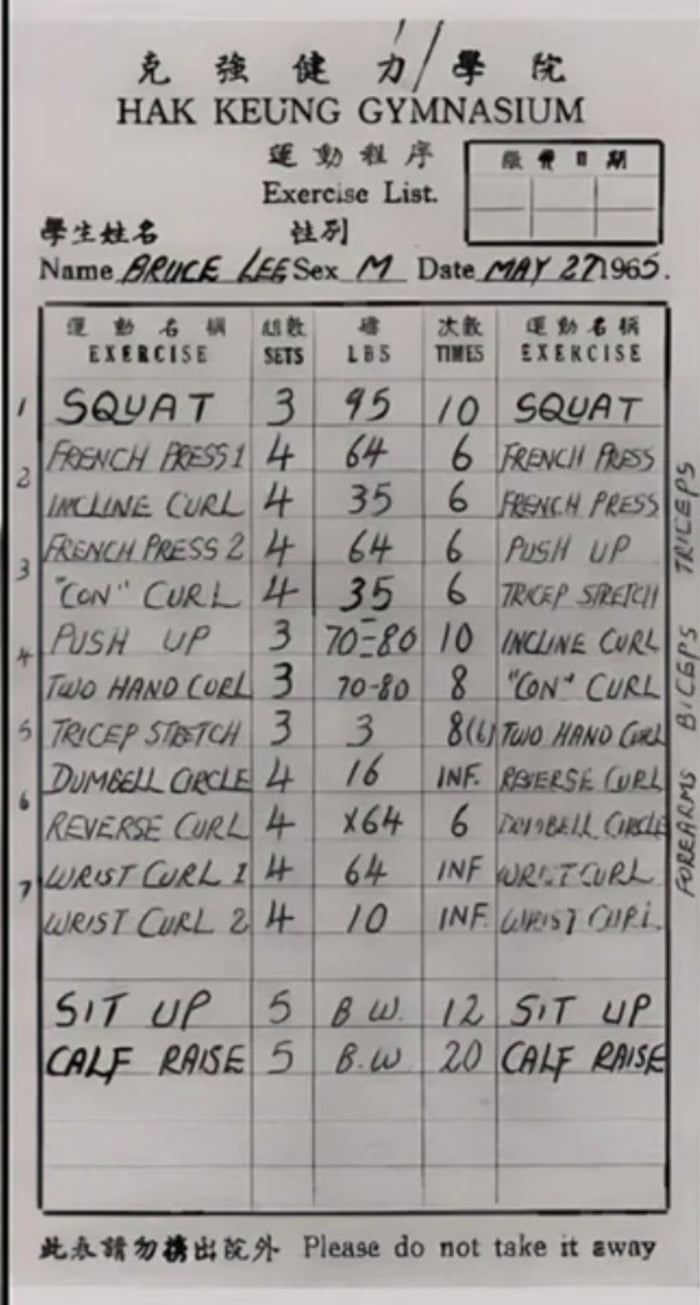 克強健力學院
HAK KEUNG GYMNASIUM
運動程序
Exercise List.
繳費日期
學生姓名 性別
Name BRUCE LEE Sex M Date MAY 27 1965.
運動名稱 組數 磅 次數 運動名稱
EXERCISE SETS LBS TIMES EXERCISE
1 SQUAT 3 95 10 SQUAT
FRENCH PRESS 1 4 64 6 FRENCH PRESS
2 INCLINE CURL 4 35 6 FRENCH PRESS
FRENCH PRESS 2 4 64 6 PUSH UP
3 "CON" CURL 4 35 6 TRICEP STRETCH
PUSH UP 3 70-80 10 INCLINE CURL
4 TWO HAND CURL 3 70-80 8 "CON" CURL
5 TRICEP STRETCH 3 3 8(6) TWO HAND CURL
DUMBELL CIRCLE 4 16 INF. REVERSE CURL
6 REVERSE CURL 4 X64 6 DUMBELL CIRCLE
WRIST CURL 1 4 64 INF WRIST CURL
7 WRIST CURL 2 4 10 INF. WRIST CURL
SIT UP 5 B.W. 12 SIT UP
CALF RAISE 5 B.W 20 CALF RAISE
FOREARMS BICEPS TRICEPS
此表請勿携出院外 Please do not take it away